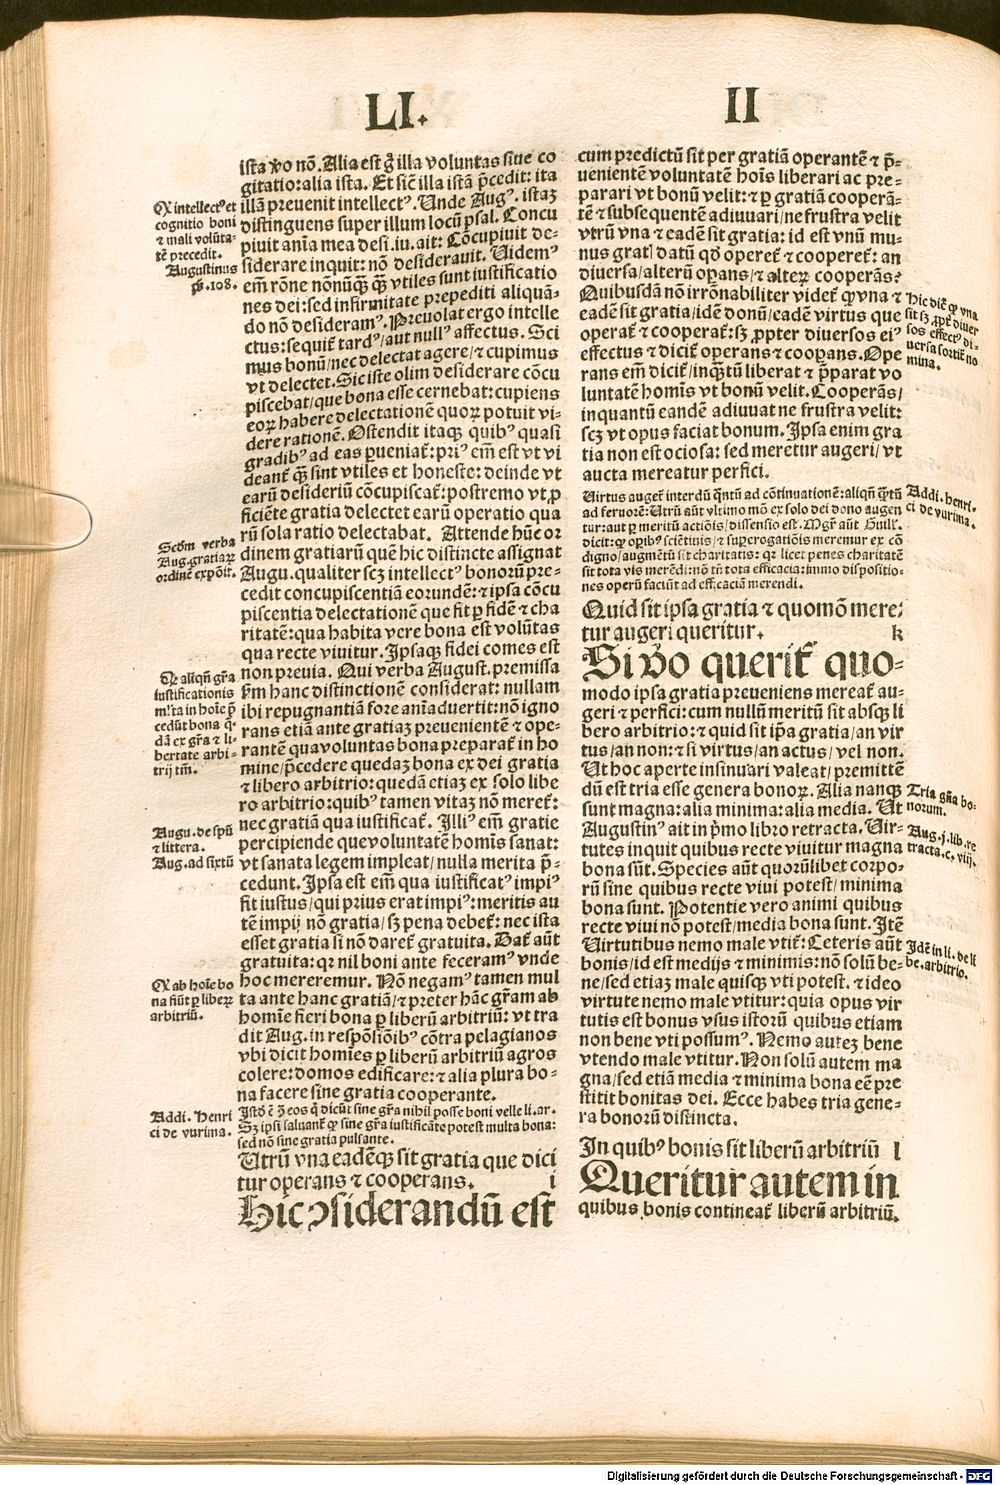 LI.
II
ista v̄o nō. Alia est g̊ illa voluntas siue co
gitatio: alia ista. Et sic̄ illa istā p̄cedit: ita
illā preuenit intellectꝰ. Unde Augꝰ. istaꝫ
distinguens super illum locū psal. Concu
piuit aīa mea desi. iu. ait: Cōcupiuit de-
siderare inquit: nō desiderauit. Uidemꝰ
em̄ rōne nonūꝙ̄ ꝙ̄ vtiles sunt iustificatio
nes dei: sed infirmitate prepediti aliquā-
do nō desideramꝰ. Preuolat ergo intelle
ctus: sequit̄ tardꝰ/aut nullꝰ affectus. Sci
mus bonū/nec delectat agere/⁊ cupimus
vt delectet. Sic iste olim desiderare cōcu
piscebat/que bona esse cernebat: cupiens
eoꝝ habere delectationē quoꝝ potuit vi-
dere rationē. Ostendit itaqꝫ quibꝰ quasi
gradibꝰ ad eas ꝑueniat̄: priꝰ em̄ est vt vi
deant̄ ꝙ̄ sint vtiles et honeste: deinde vt
earū desideriū cōcupiscat̄: postremo vt ꝓ
ficiēte gratia delectet earū operatio qua
rū sola ratio delectabat. Attende hūc or
dinem gratiarū quē hic distincte assignat
Augu. qualiter scꝫ intellectꝰ bonorū pre-
cedit concupiscentiā eorundē: ⁊ ipsa cōcu
piscentia delectationē que fit ꝑ fidē ⁊ cha
ritatē: qua habita vere bona est volūtas
qua recte viuitur. Ipsaqꝫ fidei comes est
non preuia. Qui verba August. premissa
ẜm hanc distinctionē considerat: nullam
ibi repugnantiā fore aīaduertit: nō igno
rans etiā ante gratiaꝫ preuenientē ⁊ ope-
rantē qua voluntas bona preparat̄ in ho
mine/p̄cedere quedaꝫ bona ex dei gratia
⁊ libero arbitrio: quedā etiaꝫ ex solo libe
ro arbitrio: quibꝰ tamen vitaꝫ nō meret̄:
nec gratiā qua iustificat̄. Illiꝰ em̄ gratie
percipiende que voluntatē homīs sanat:
vt sanata legem impleat/nulla merita p̄-
cedunt. Ipsa est em̄ qua iustificatꝰ impiꝰ
fit iustus/qui prius erat impiꝰ: meritis au
tē impij nō gratia/sꝫ pena debet̄: nec ista
esset gratia si nō daret̄ gratuita. Dat̄ aūt
gratuita: qꝛ nil boni ante feceramꝰ vnde
hoc mereremur. Nō negamꝰ tamen mul
ta ante hanc gratiā/⁊ preter hāc gr̄am ab
homīe fieri bona ꝑ liberū arbitriū: vt tra
dit Aug. in respōsiōibꝰ cōtra pelagianos
vbi dicit homīes ꝑ liberū arbitriū agros
colere: domos edificare: ⁊ alia plura bo-
na facere sine gratia cooperante.
Istd̄ ē ꝯ̄ eos q̇ dicūt sine gr̄a nihil posse boni velle li. ar.
Sꝫ ipsi saluant̄ ꝙ sine gr̄a iustificāte potest multa bona:
sed nō sine gratia pulsante.
Utrū vna eadēqꝫ sit gratia que dici
tur operans ⁊ cooperans. i
Hic ꝯsiderandū est
Ꝙ intellectꝰ et
cognitio boni
⁊ mali volūta-
tē precedit.
Augustinus
ps̄. 108.
Scd̄m verba
Aug. gratiaꝝ
ordinē expōit.
Ꝙ aliqn̄ gr̄a
iustificationis
ml̄ta in hoīe p̄
cedūt bona q̇-
dā ex gr̄a ⁊ li-
bertate arbi-
trij tm̄.
Augu. de spū
⁊ littera.
Aug. ad sixtū
Ꝙ ab hoīe bo
na fiūt ꝑ liberꝝ
arbitriū.
Addi. Henri
ci de vurima.
cum predictū sit per gratiā operantē ⁊ p̄-
uenientē voluntatē hoīs liberari ac pre-
parari vt bonū velit: ⁊ ꝑ gratiā cooperā-
tē ⁊ subsequentē adiuuari/ne frustra velit
vtrū vna ⁊ eadē sit gratia: id est vnū mu-
nus grat[ datū qd̄ operet̄ ⁊ cooperet̄: an
diuersa/alterū oꝑans/⁊ alterꝝ cooperās?
Quibusdā nō irrōnabiliter videt̄ ꝙ vna ⁊
eadē sit gratia/idē donū/eadē virtus que
operat̄ ⁊ cooperat̄: sꝫ ꝓpter diuersos eiꝰ
effectus ⁊ dicit̄ operans ⁊ cooꝑans. Ope
rans em̄ dicit̄/inꝙ̄tū liberat ⁊ p̄parat vo
luntatē homīs vt bonū velit. Cooperās/
inquantū eandē adiuuat ne frustra velit:
scꝫ vt opus faciat bonum. Ipsa enim gra
tia non est ociosa: sed meretur augeri/vt
aucta mereatur perfici.
Uirtus auget̄ interdū qn̄tū ad cōtinuationē: aliqn̄ ꝙ̄tū
ad feruorē: Utrū aūt vltimo mō ex solo dei dono augen
tur: aut ꝑ meritū actiōis/dissensio est. Mgr̄ aūt Guill.
dicit: ꝙ oꝑibꝰ sciētiuis/⁊ suꝑerogatiōis meremur ex cō
digno/augmētū sit charitatis: qꝛ licet penes charitatē
sit tota vis merēdi: nō tn̄ tota efficacia: immo dispositio-
nes operū faciūt ad efficaciā merendi.
Quid sit ipsa gratia ⁊ quomō mere-
tur augeri queritur. k
Si v̄o querit̄ quo-
modo ipsa gratia preueniens mereat̄ au-
geri ⁊ perfici: cum nullū meritū sit absqꝫ li
bero arbitrio: ⁊ quid sit ip̄a gratia/an vir
tus/an non: ⁊ si virtus/an actus/vel non.
Ut hoc aperte insinuari valeat/premittē
dū est tria esse genera bonoꝝ. Alia nanqꝫ
sunt magna: alia minima: alia media. Ut
Augustinꝰ ait in p̄mo libro retracta. Uir-
tutes inquit quibus recte viuitur magna
bona sūt. Species aūt quorūlibet corpo-
rū sine quibus recte viui potest/minima
bona sunt. Potentie vero animi quibus
recte viui nō potest/media bona sunt. Itē
Uirtutibus nemo male vtit̄: Ceteris aūt
bonis/id est medijs ⁊ minimis: nō solū be-
ne/sed etiaꝫ male quisqꝫ vti potest. ⁊ ideo
virtute nemo male vtitur: quia opus vir
tutis est bonus vsus istorū quibus etiam
non bene vti possumꝰ. Nemo auteꝫ bene
vtendo male vtitur. Non solū autem ma
gna/sed etiā media ⁊ minima bona eē pre
stitit bonitas dei. Ecce habes tria gene-
ra bonorū distincta.
In quibꝰ bonis sit liberū arbitriū l
Queritur autem in
quibus bonis contineat̄ liberū arbitriū.
Hic dic̄ ꝙ vna
sit sꝫ ꝓpt̄ diuer
sos effectꝰ di-
uersa sortit̄ no
mina.
Addi. henri-
ci de vurima.
Tria gn̄a bo-
norum.
Aug. j. lib. re
tracta. c. viij.
Idē in li. de li
be. arbitrio.
Digitalisierung gefördert durch die Deutsche Forschungsgemeinschaft - DFG